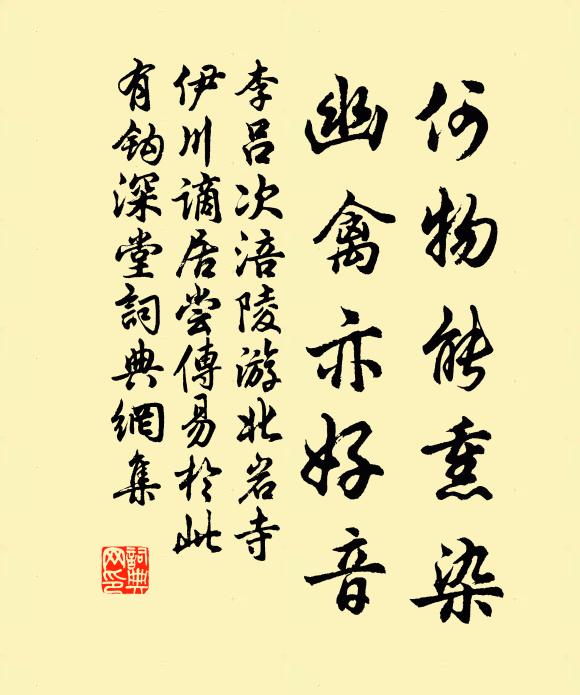 何物能熏染
幽禽亦好音
李呂次涪陵游北岩寺
伊川谪居尝傳易於此
有鈎深堂詞典網集
詞典網印